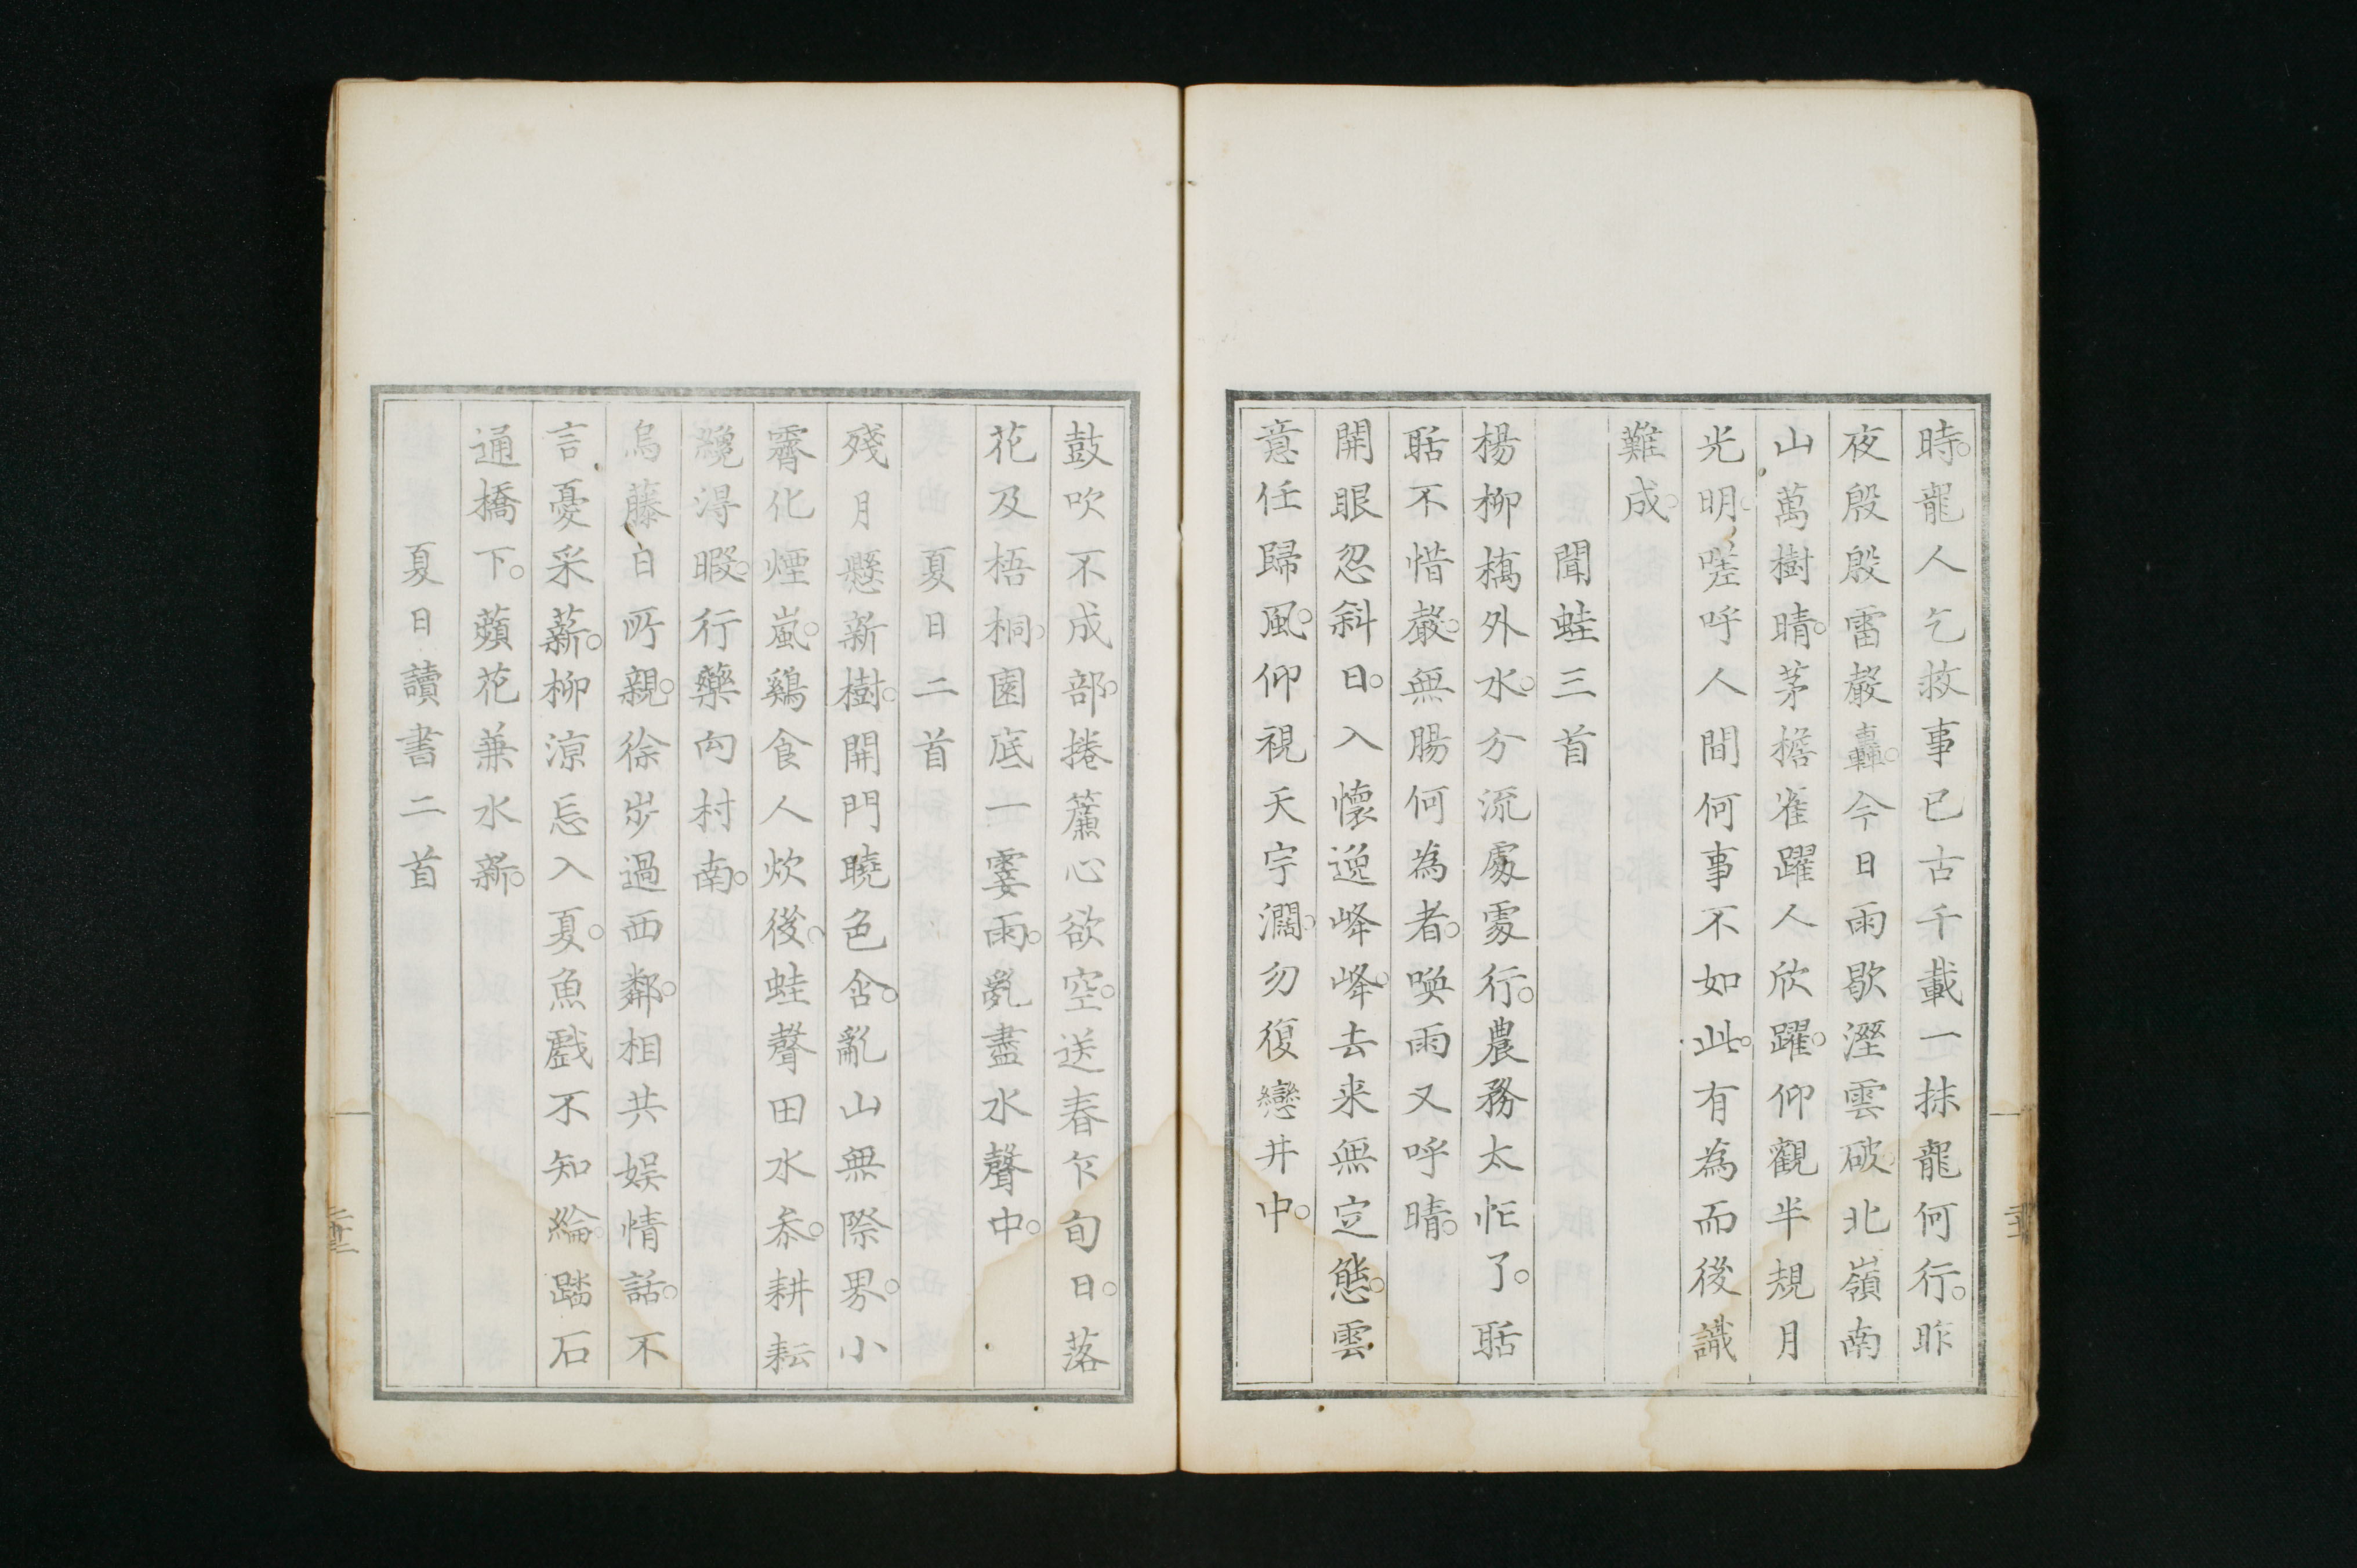 時龍人乞救事已古千載一抹龍何行昨
夜殷殷雷嚴轟今日雨歇溼雲破北嶺南
山萬樹晴茅檐雀躍人欣躍仰觀半規月
光明嗟呼人間何事不如此有為而後識
難成
聞蛙三首
楊柳橋外水分流處處行農務太忙了聒
聒不惜嚴無腸何為者喚雨又呼晴
開眼忽斜日入懷逆峰峰去来無定態雲
意任歸風仰視天宇濶勿復戀井中
鼓吹不成部捲簾心欲空送春乍旬日落
花及梧桐園底一霎雨亂盡水聲中
夏日二首
殘月懸新樹開門曉色含亂山無際界小
霽化煙嵐鷄食人炊後蛙聲田水忝耕耘
纔淂暇行藥向村南
烏藤白所親徐步過西鄰相共娯情話不
言憂采薪柳凉忘入夏魚戲不知綸踏石
通橋下蘋花兼水新
夏日讀書二首
二十二